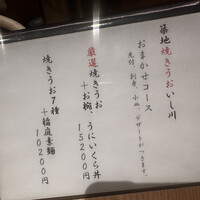 築地焼きうおいし川
おまかせコース
先付、刺身、小皿、デザートがつきます。
厳選焼きうお
+お椀、うにいくら丼
15200円
焼きうお7種
+稲庭素麺
10200円